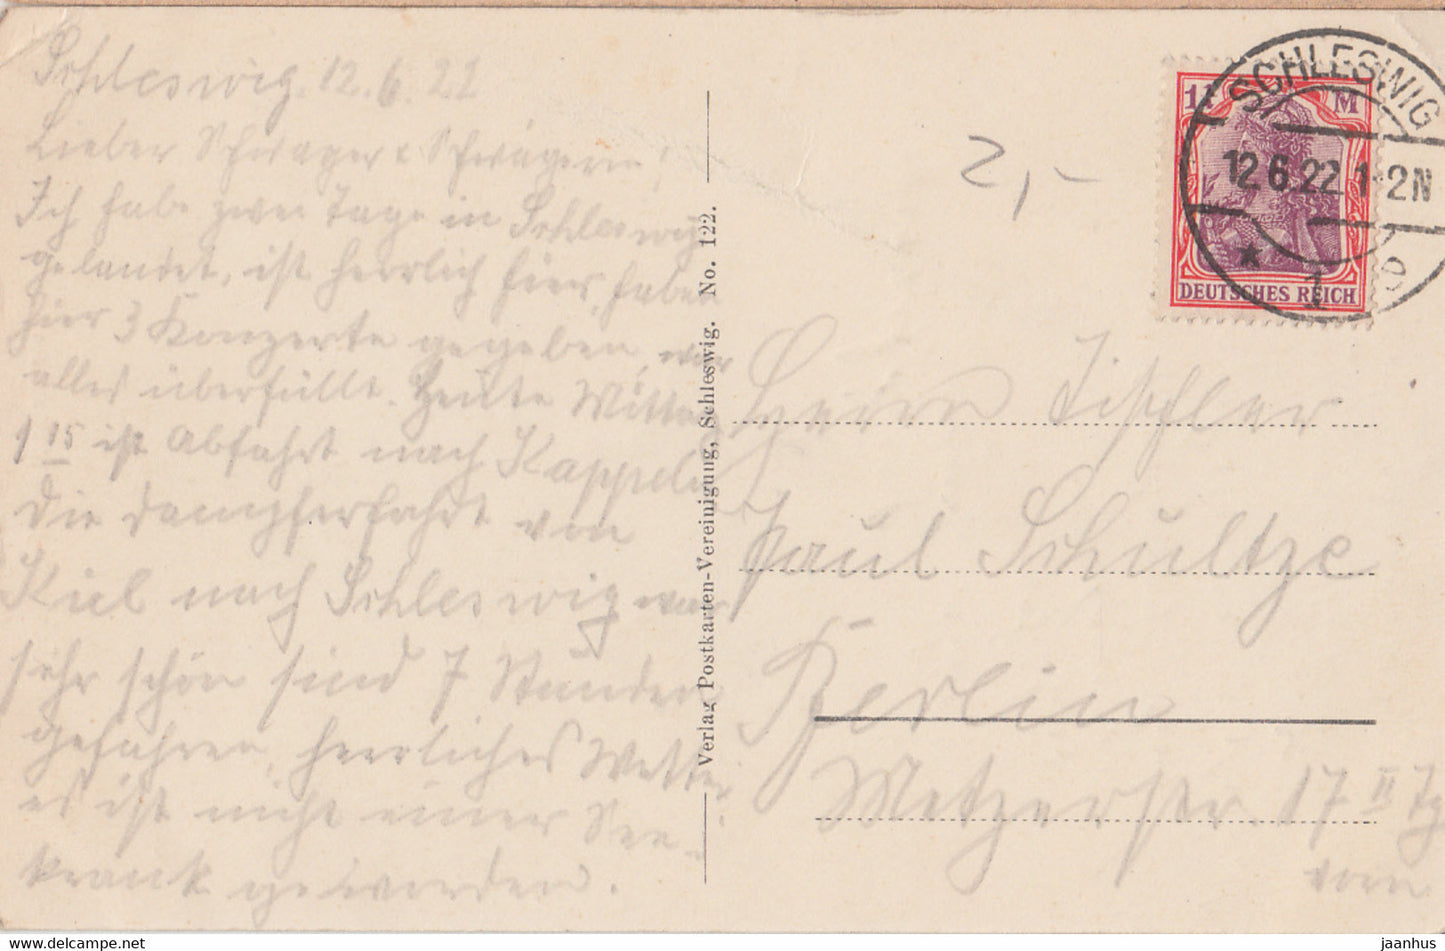 Schleswig. 12. 6. 22
Lieber Schwager & Schwägerin!
Ich habe zwei Tage in Schleswig
gelandet, ist herrlich hier, haben
hier 3 Konzerte gegeben, war
alles überfüllt. Heute Mittag
1 15 ist Abfahrt nach Kappeln
Die Dampferfahrt von
Kiel nach Schleswig war
sehr schön sind 7 Stunden
gefahren, herrliches Wetter
es ist nicht einer See-
krank geworden.
Verlag Postkarten-Vereinigung, Schleswig. No. 122.
2,-
SCHLESWIG
12.6.22 1-2N
* 1
M
DEUTSCHES REICH
Herrn Tischler
Paul Schultze
Berlin
Metzerstr. 17 II
vorn
jaanhus-collections.com